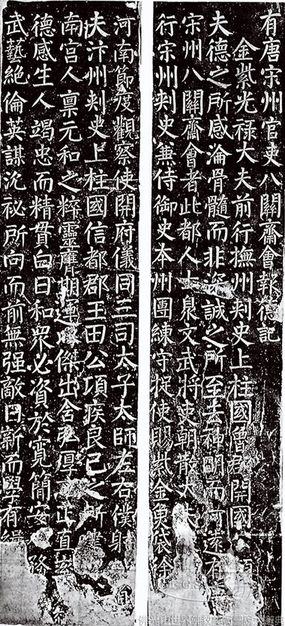 有唐宋州官吏八關齋會報德記
金紫光祿大夫前行撫州刺史上柱國魯郡開國
夫德之所感淪骨髓而非深誠之所至去神明而何遠有
宋州八關齋會者此都人士眾文武將吏朝散大夫
行宋州刺史兼侍御史本州團練守捉使賜紫金魚袋徐
河南節度觀察使開府儀同三司太子太師左右僕射
夫汴州刺史上柱國信都郡王田公頃疾良已之所
南宮人稟元和之粹靈膺期運之傑出含弘厚下正直
德感生人竭忠而精貫白日和眾必資於寬簡安
武藝絕倫英謀沉祕所向而前無強敵日新而學有緝